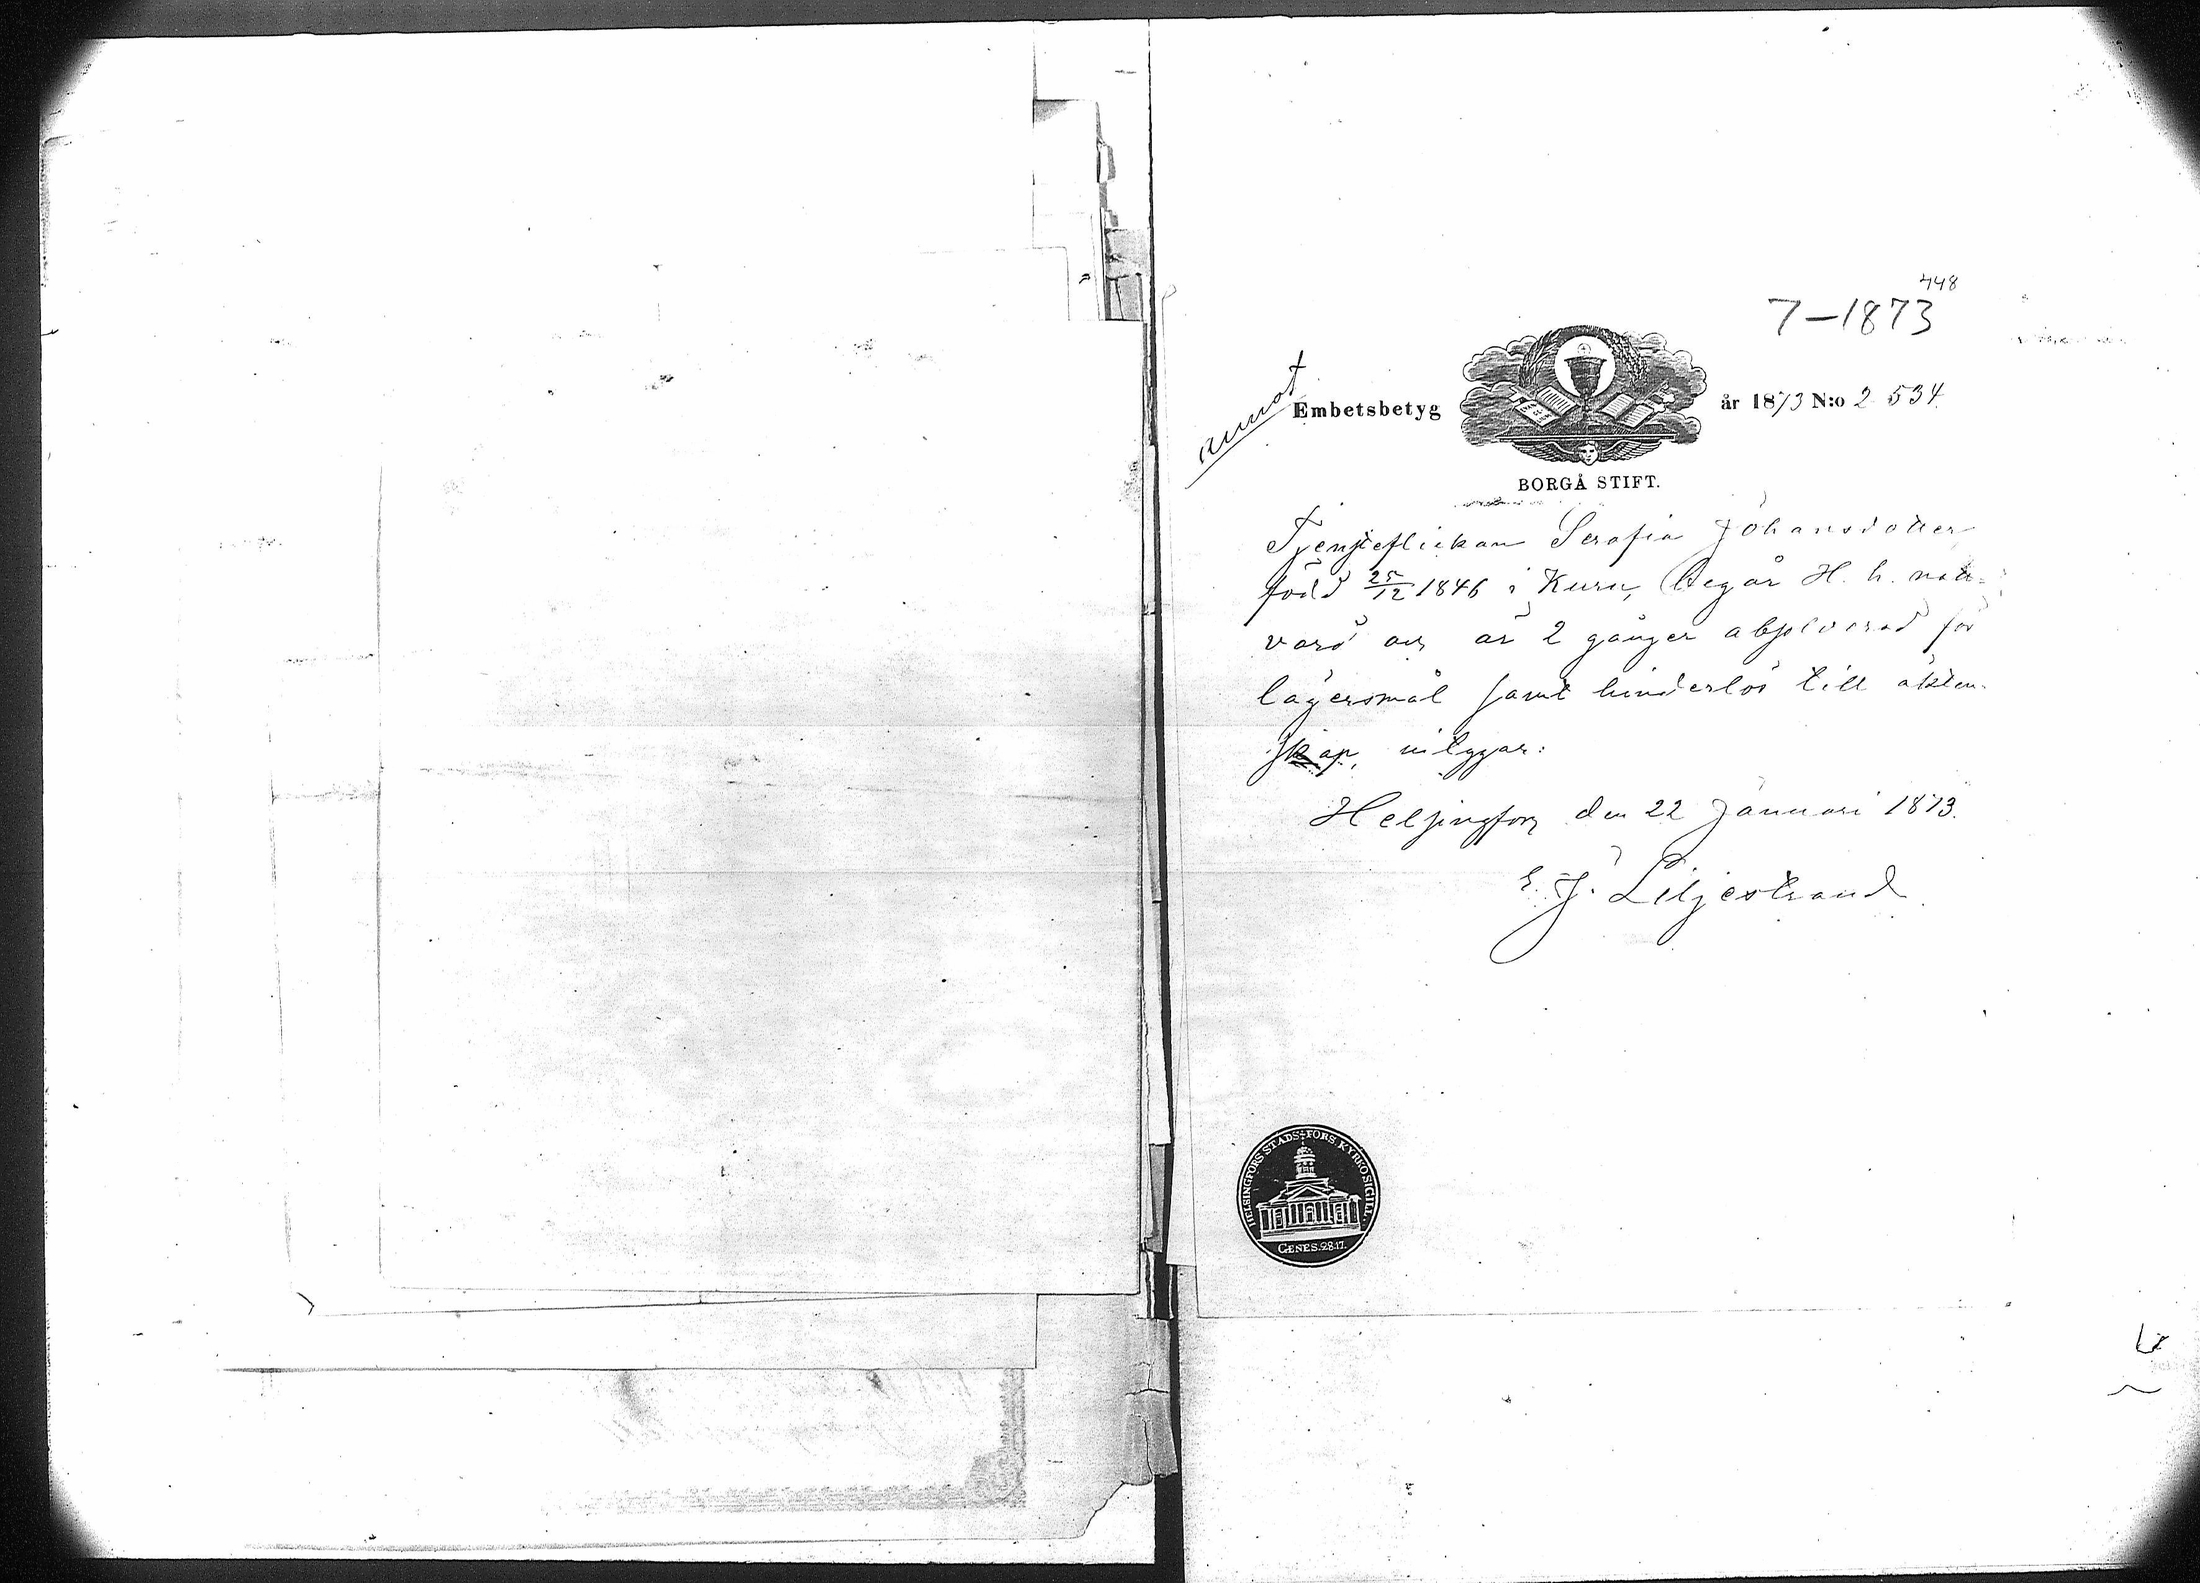 448
7–1873
Embetsbetyg år 1873 N:o 2 534.
BORGÅ STIFT.
Tjensteflickan Serafia Johansdotter
född 25/12 1846 i Kuru, begår H. h. natt-
vard och är 2 gånger absolverad för
lägersmål samt hinderlös till äkten-
skap,
Helsingfors den 22 Januari 1873.
E. J. Liljestrand
HELSINGFORS STADS-FÖRS. KYRKOSIGILL.
GENES. 28.17.